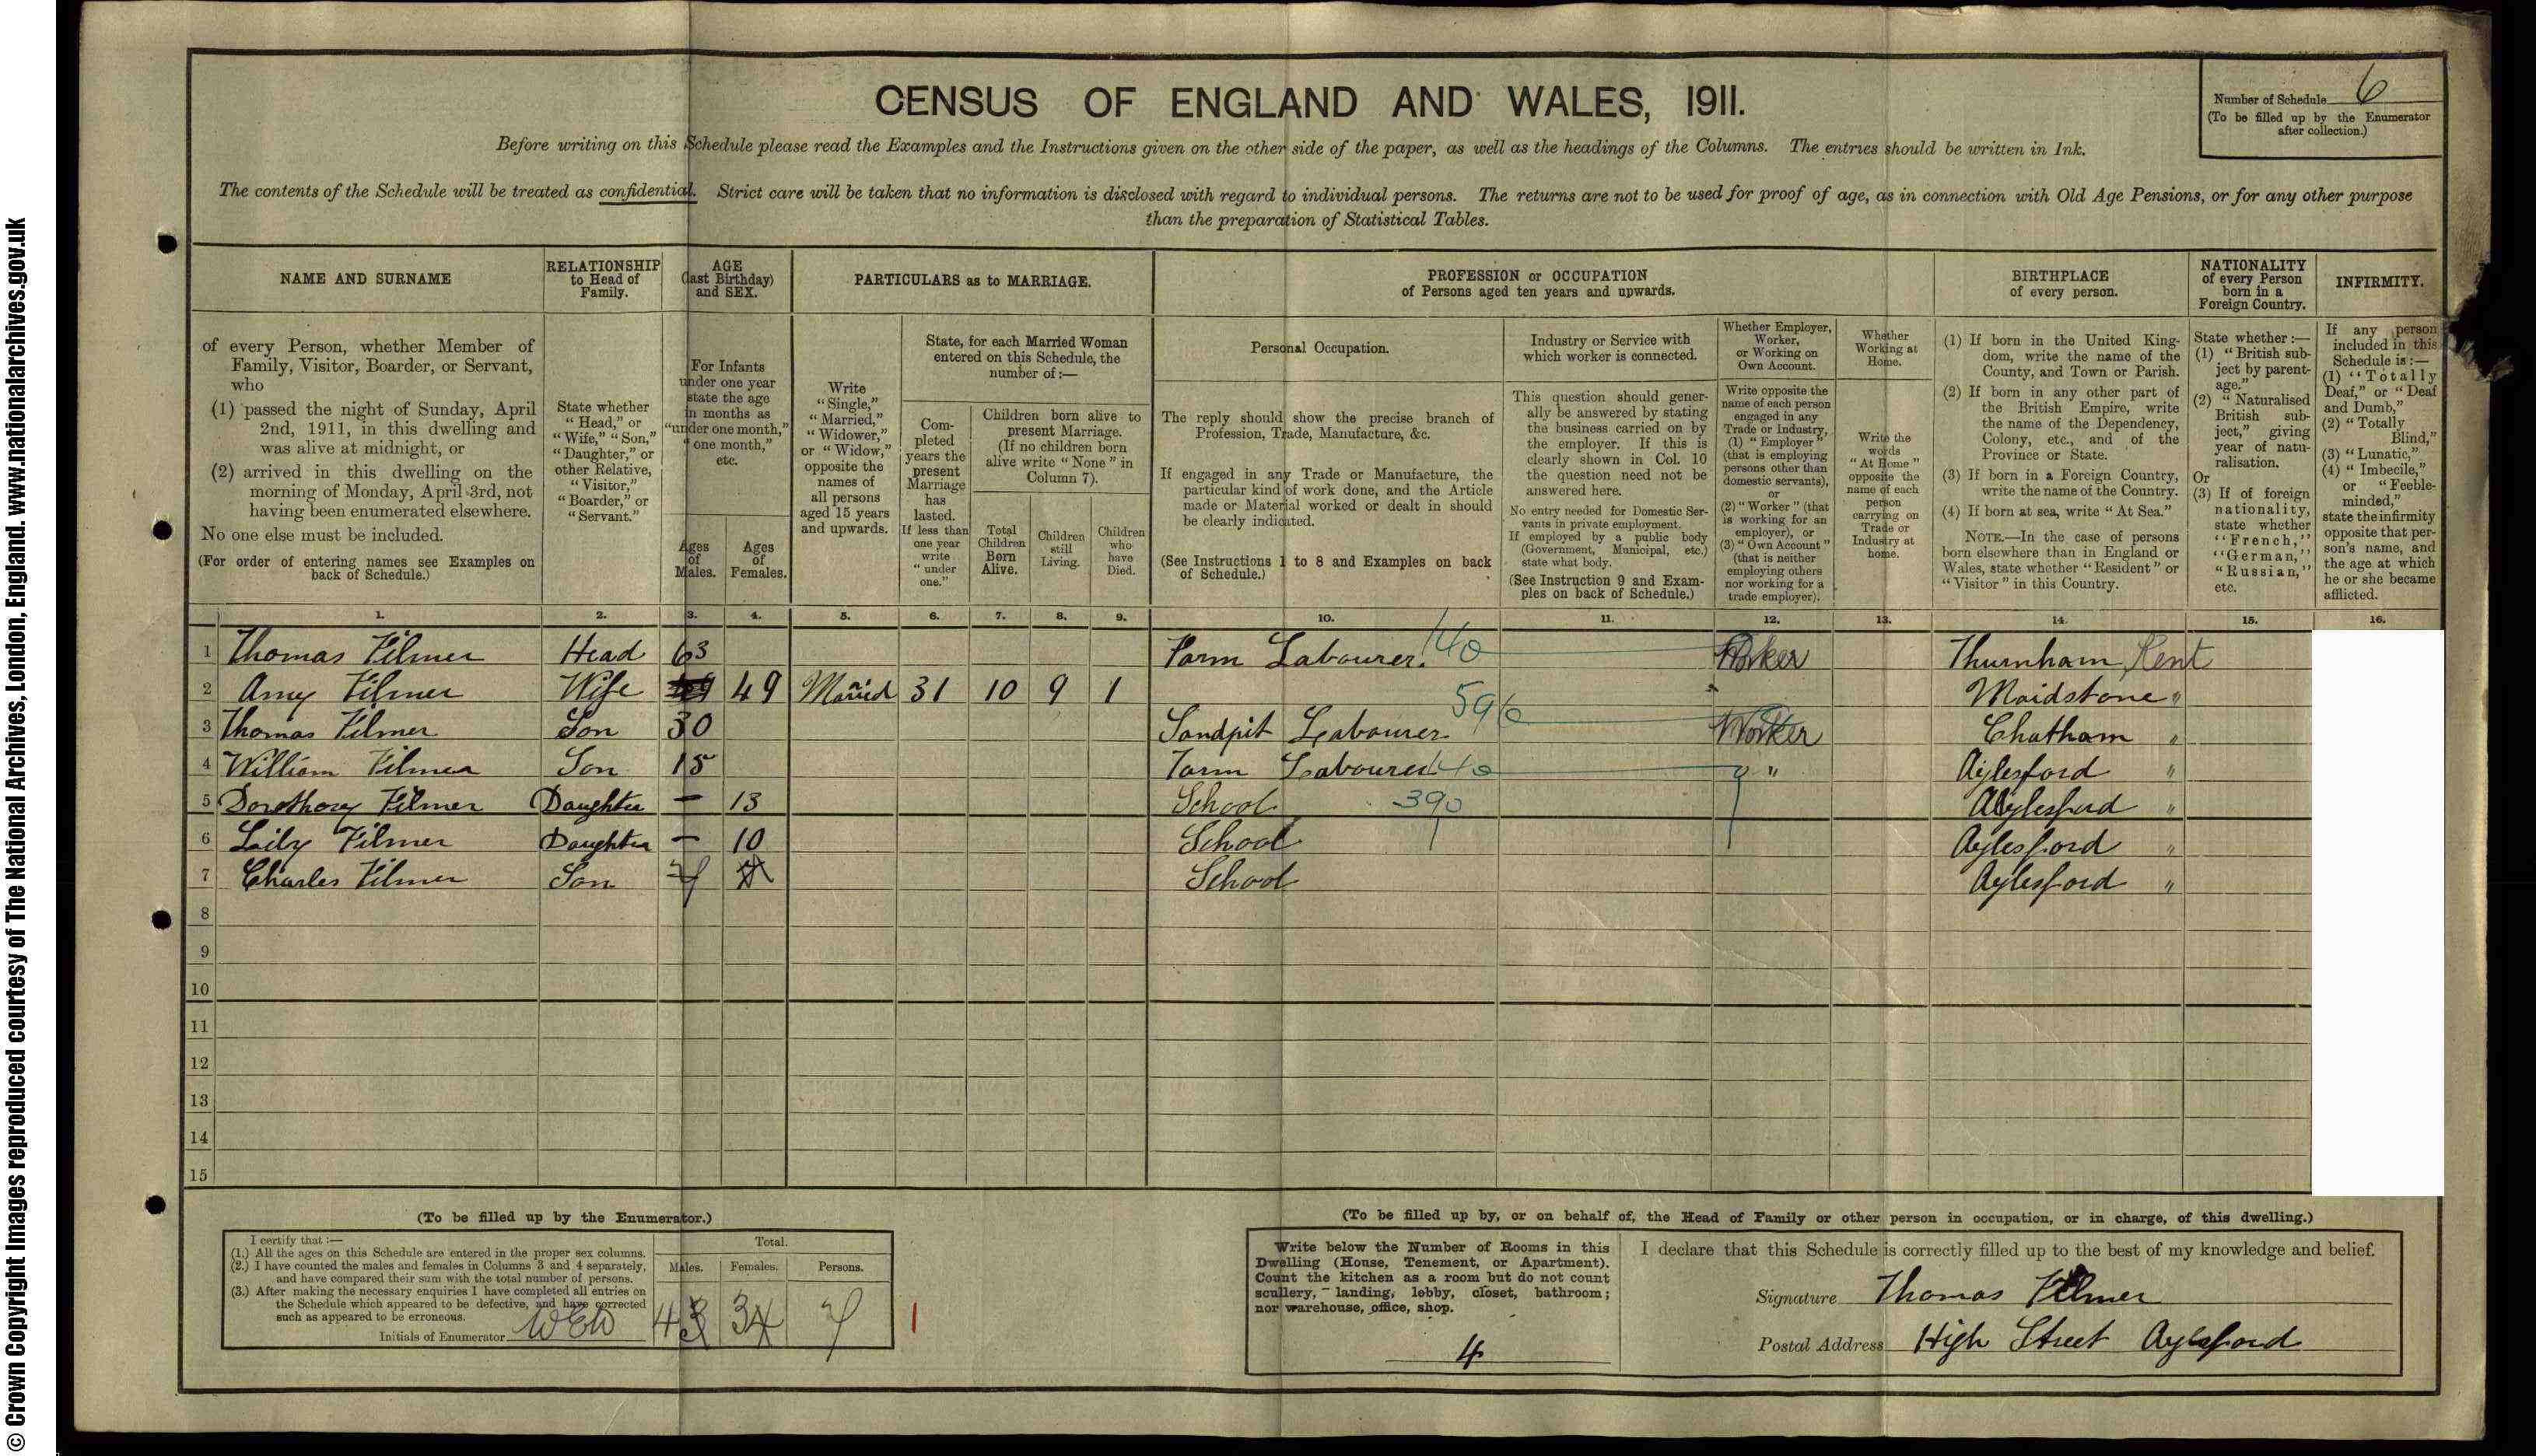 © Crown Copyright Images reproduced courtesy of The National Archives, London, England. www.nationalarchives.gov.uk
CENSUS OF ENGLAND AND WALES, 1911.
Number of Schedule 6
(To be filled up by the Enumerator
after collection.)
Before writing on this Schedule please read the Examples and the Instructions given on the other side of the paper, as well as the headings of the Columns. The entries should be written in Ink.
The contents of the Schedule will be treated as confidential. Strict care will be taken that no information is disclosed with regard to individual persons. The returns are not to be used for proof of age, as in connection with Old Age Pensions, or for any other purpose
than the preparation of Statistical Tables.
NAME AND SURNAME
RELATIONSHIP
to Head of
Family.
AGE
(last Birthday)
and SEX.
PARTICULARS as to MARRIAGE.
PROFESSION or OCCUPATION
of Persons aged ten years and upwards.
BIRTHPLACE
of every person.
NATIONALITY
of every Person
born in a
Foreign Country.
INFIRMITY.
of every Person, whether Member of
Family, Visitor, Boarder, or Servant,
who
(1) passed the night of Sunday, April
2nd, 1911, in this dwelling and
was alive at midnight, or
(2) arrived in this dwelling on the
morning of Monday, April 3rd, not
having been enumerated elsewhere.
No one else must be included.
(For order of entering names see Examples on
back of Schedule.)
State whether
"Head," or
"Wife," "Son,"
"Daughter," or
other Relative,
"Visitor,"
"Boarder," or
"Servant."
For Infants
under one year
state the age
in months as
"under one month,"
"one month,"
etc.
Ages
of
Males.
Ages
of
Females.
Write
"Single,"
"Married,"
"Widower,"
or "Widow,"
opposite the
names of
all persons
aged 15 years
and upwards.
State, for each Married Woman
entered on this Schedule, the
number of:—
Com-
pleted
years the
present
Marriage
has
lasted.
If less than
one year
write
"under
one."
Children born alive to
present Marriage.
(If no children born
alive write "None" in
Column 7).
Total
Children
Born
Alive.
Children
still
Living.
Children
who
have
Died.
Personal Occupation.
The reply should show the precise branch of
Profession, Trade, Manufacture, &c.
If engaged in any Trade or Manufacture, the
particular kind of work done, and the Article
made or Material worked or dealt in should
be clearly indicated.
(See Instructions 1 to 8 and Examples on back
of Schedule.)
Industry or Service with
which worker is connected.
This question should gener-
ally be answered by stating
the business carried on by
the employer. If this is
clearly shown in Col. 10
the question need not be
answered here.
No entry needed for Domestic Ser-
vants in private employment.
If employed by a public body
(Government, Municipal, etc.)
state what body.
(See Instruction 9 and Exam-
ples on back of Schedule.)
Whether Employer,
Worker,
or Working on
Own Account.
Write opposite the
name of each person
engaged in any
Trade or Industry,
(1) "Employer"
(that is employing
persons other than
domestic servants),
or
(2) "Worker" (that
is working for an
employer), or
(3) "Own Account"
(that is neither
employing others
nor working for a
trade employer).
Whether
Working at
Home.
Write the
words
"At Home"
opposite the
name of each
person
carrying on
Trade or
Industry at
home.
(1) If born in the United King-
dom, write the name of the
County, and Town or Parish.
(2) If born in any other part of
the British Empire, write
the name of the Dependency,
Colony, etc., and of the
Province or State.
(3) If born in a Foreign Country,
write the name of the Country.
(4) If born at sea, write "At Sea."
NOTE.—In the case of persons
born elsewhere than in England or
Wales, state whether "Resident" or
"Visitor" in this Country.
State whether:—
(1) "British sub-
ject by parent-
age."
(2) "Naturalised
British sub-
ject," giving
year of natu-
ralisation.
Or
(3) If of foreign
nationality,
state whether
"French,"
"German,"
"Russian,"
etc.
If any person
included in this
Schedule is:—
(1) "Totally
Deaf," or "Deaf
and Dumb,"
(2) "Totally
Blind,"
(3) "Lunatic,"
(4) "Imbecile,"
or "Feeble-
minded,"
state the infirmity
opposite that per-
son's name, and
the age at which
he or she became
afflicted.
1. 2. 3. 4. 5. 6. 7. 8. 9. 10. 11. 12. 13. 14. 15. 16.
1 Thomas Filmer Head 63 Farm Labourer. 140 Worker Thurnham Kent
2 Amy Filmer Wife 49 Married 31 10 9 1 Maidstone "
3 Thomas Filmer Son 30 Sandpit Labourer 596 Worker Chatham "
4 William Filmer Son 15 Farm Labourer 140 " Aylesford "
5 Dorothory Filmer Daughter — 13 School 390 Aylesford "
6 Lily Filmer Daughter — 10 School Aylesford "
7 Charles Filmer Son 7 School Aylesford "
8
9
10
11
12
13
14
15
(To be filled up by the Enumerator.)
I certify that:—
(1.) All the ages on this Schedule are entered in the proper sex columns.
(2.) I have counted the males and females in Columns 3 and 4 separately,
and have compared their sum with the total number of persons.
(3.) After making the necessary enquiries I have completed all entries on
the Schedule which appeared to be defective, and have corrected
such as appeared to be erroneous.
Initials of Enumerator WEW
Total.
Males. Females. Persons.
4 3 3 4 7
(To be filled up by, or on behalf of, the Head of Family or other person in occupation, or in charge, of this dwelling.)
Write below the Number of Rooms in this
Dwelling (House, Tenement, or Apartment).
Count the kitchen as a room but do not count
scullery, landing, lobby, closet, bathroom;
nor warehouse, office, shop.
4
I declare that this Schedule is correctly filled up to the best of my knowledge and belief.
Signature Thomas Filmer
Postal Address High Street Aylesford